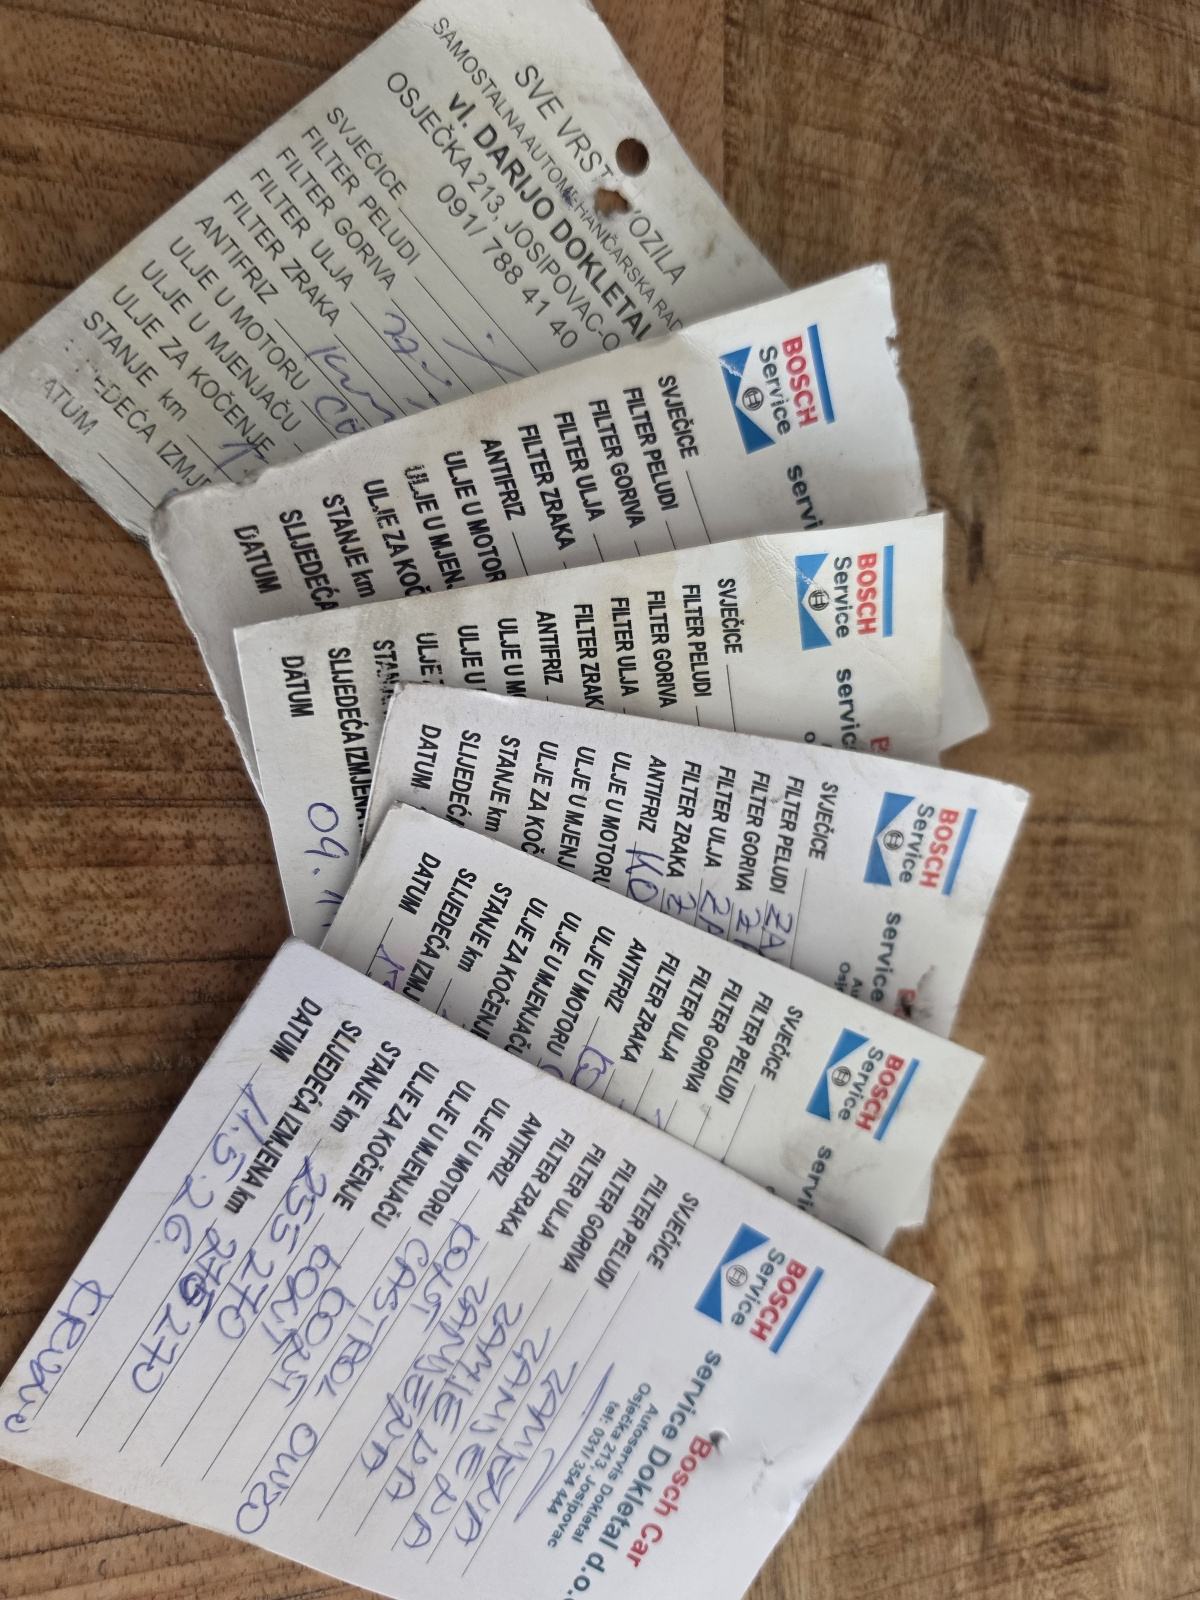 SVE VRST VOZILA
SAMOSTALNA AUTOMEHANIČARSKA RAD
vl. DARIJO DOKLETAL
OSJEČKA 213, JOSIPOVAC-O
091/ 788 41 40
SVJEĆICE
FILTER PELUDI
FILTER GORIVA
FILTER ULJA
FILTER ZRAKA
ANTIFRIZ
ULJE U MOTORU
ULJE U MJENJAČU
ULJE ZA KOČENJE
STANJE km
EDEĆA IZMJE
ATUM
BOSCH
Service
servi
SVJEĆICE
FILTER PELUDI
FILTER GORIVA
FILTER ULJA
FILTER ZRAKA
ANTIFRIZ
ULJE U MOTOR
ULJE U MJEN
ULJE ZA KOČ
STANJE km
SLIJEDEĆA
DATUM
BOSCH
Service
servic
SVJEĆICE
FILTER PELUDI
FILTER GORIVA
FILTER ULJA
FILTER ZRAK
ANTIFRIZ
ULJE U M
ULJE U
ULJE
STAN
SLIJEDEĆA IZMJENA
DATUM 09.1
BOSCH
Service
service
Au
Osje
SVJEĆICE
FILTER PELUDI ZA
FILTER GORIVA
FILTER ULJA ZA
FILTER ZRAKA
ANTIFRIZ KO
ULJE U MOTORU
ULJE U MJENJ
ULJE ZA KOČ
STANJE km
SLIJEDEĆ
DATUM
BOSCH
Service
servi
SVJEĆICE
FILTER PELUDI
FILTER GORIVA
FILTER ULJA
FILTER ZRAKA
ANTIFRIZ
ULJE U MOTORU
ULJE U MJENJAČU
ULJE ZA KOČENJ
STANJE km
SLIJEDEĆA IZMJ
DATUM
BOSCH
Service
Bosch Car
service Dokletal d.o.
Autoservis Dokletal
Osječka 213, Josipovac
tel: 031/ 354 444
SVJEĆICE
FILTER PELUDI ZAMJENA
FILTER GORIVA ZAMJENA
FILTER ULJA ZAMJENA
FILTER ZRAKA ZAMJENA
ANTIFRIZ
ULJE U MOTORU CASTROL OW20
ULJE U MJENJAČU
ULJE ZA KOČENJE
STANJE km 255270
SLIJEDEĆA IZMJENA km 275270
DATUM 11.5.26.